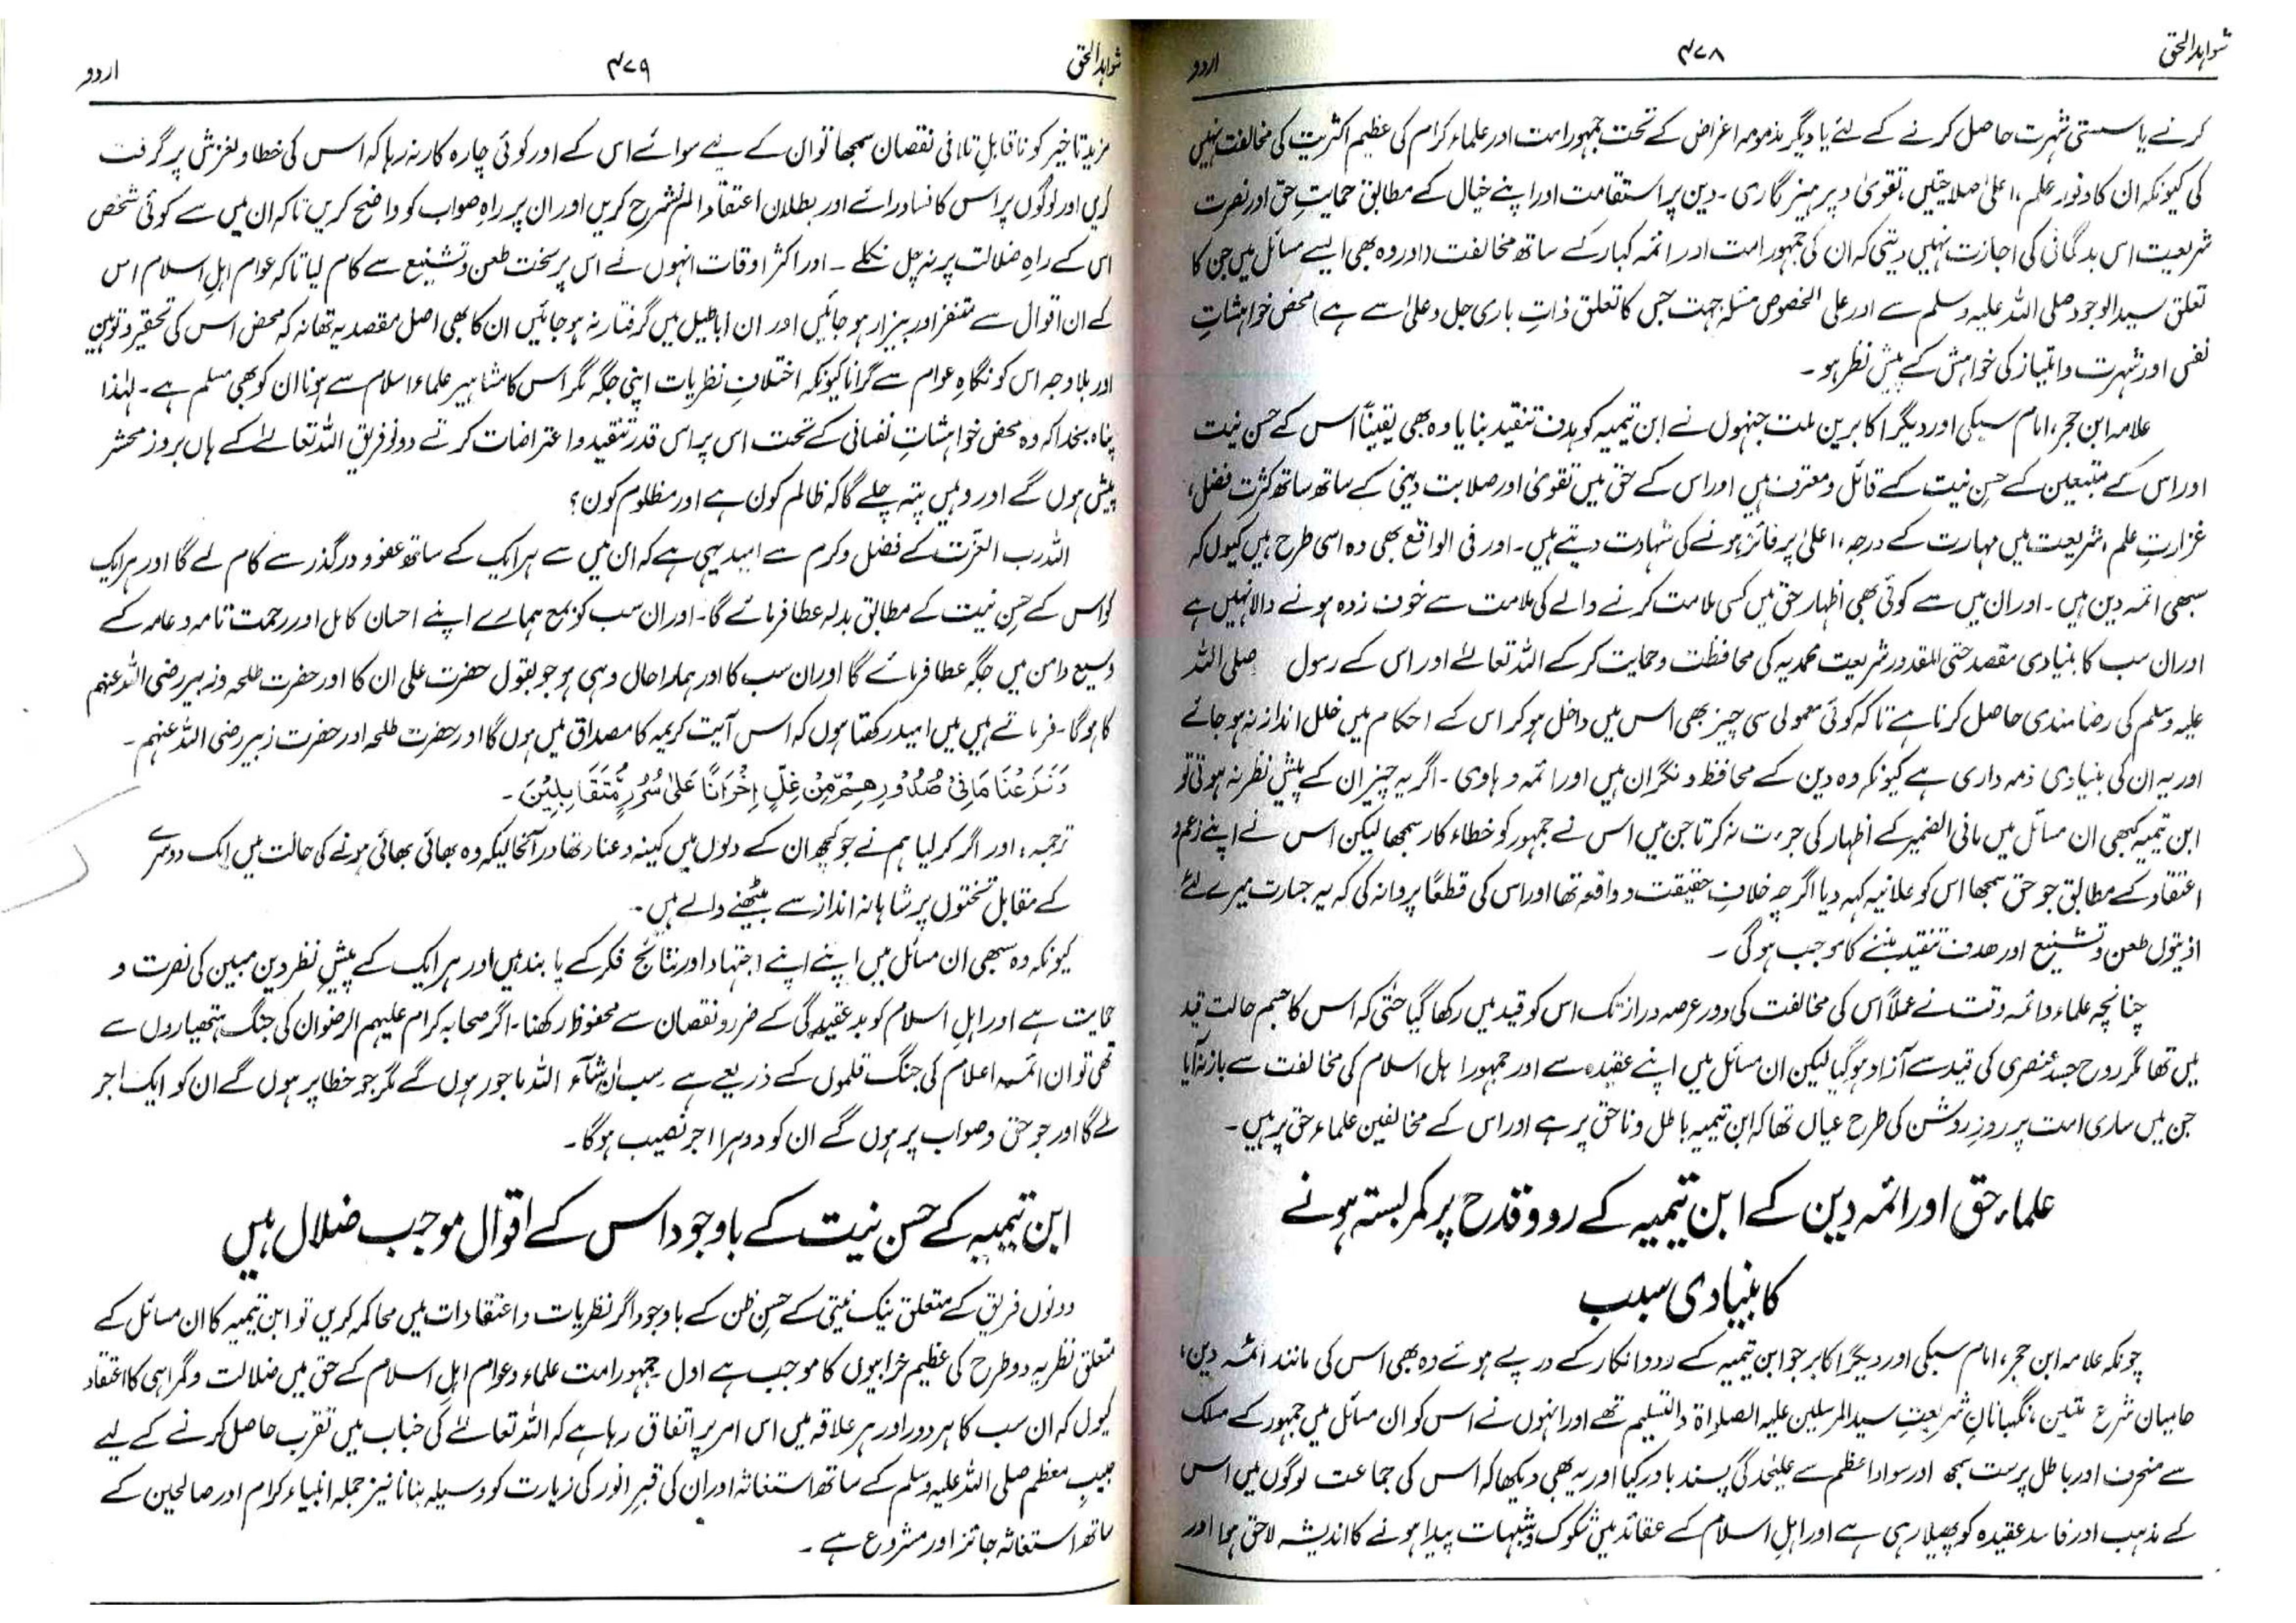 شواہد الحق
۴۷۸
اردو
کرنے یا سستی شہرت حاصل کرنے کے لئے یا دیگر مذمومہ اغراض کے تحت جمہور امت اور علماء کرام کی عظیم اکثریت کی مخالفت نہیں
کی کیونکہ ان کا وفور علم، اعلیٰ صلاحیتیں، تقویٰ و پرہیز گاری ۔ دین پر استقامت اور اپنے خیال کے مطابق حمایتِ حق اور نصرت
شریعت اس بدگمانی کی اجازت نہیں دیتی کہ ان کی جمہور امت اور ائمہ کبار کے ساتھ مخالفت (اور وہ بھی ایسے مسائل میں جن کا
تعلق سید الوجود صلی اللہ علیہ وسلم سے اور علی الخصوص مسئلہ جہت جس کا تعلق ذاتِ باری جل وعلیٰ سے ہے) محض خواہشاتِ
نفس اور شہرت و امتیاز کی خواہش کے پیش نظر ہو ۔
علامہ ابن حجر، امام سبکی اور دیگر اکابرین ملت جنہوں نے ابن تیمیہ کو ہدف تنقید بنایا وہ بھی یقیناً اس کے حسن نیت
اور اس کے متبعین کے حسنِ نیت کے قائل و معترف ہیں اور اس کے حق میں تقویٰ اور صلابت دینی کے ساتھ ساتھ کثرت فضل،
غزارتِ علم، شریعت میں مہارت کے درجہء اعلیٰ پر فائز ہونے کی شہادت دیتے ہیں۔ اور فی الواقع بھی وہ اسی طرح ہیں کیوں کہ
سبھی ائمہ دین ہیں ۔ اور ان میں سے کوئی بھی اظہار حق میں کسی ملامت کرنے والے کی ملامت سے خوف زدہ ہونے والا نہیں ہے
اور ان سب کا بنیادی مقصد حتی المقدور شریعت محمدیہ کی محافظت و حمایت کر کے اللہ تعالےٰ اور اس کے رسول صلی اللہ
علیہ وسلم کی رضا مندی حاصل کرنا ہے تاکہ کوئی معمولی سی چیز بھی اس میں داخل ہو کر اس کے احکام میں خلل انداز نہ ہو جائے
اور یہ ان کی بنیادی ذمہ داری ہے کیونکہ وہ دین کے محافظ و نگران ہیں اور ائمہ و ہادی ۔ اگر یہ چیز ان کے پیش نظر نہ ہوتی تو
ابن تیمیہ کبھی ان مسائل میں مافی الضمیر کے اظہار کی جرءت نہ کرتا جن میں اس نے جمہور کو خطاء کار سمجھا لیکن اس نے اپنے زعم و
اعتقاد کے مطابق جو حق سمجھا اس کو علانیہ کہہ دیا اگرچہ خلافِ حقیقت و واقعہ تھا اور اس کی قطعاً پروا نہ کی کہ یہ جسارت میرے لئے
اذیتوں طعن و تشنیع اور ھدف تنقید بننے کا موجب ہو گی ۔
چنانچہ علماء و ائمہ وقت نے عملاً اس کی مخالفت کی و در عرصہ دراز تک اس کو قید میں رکھا گیا حتٰی کہ اس کا جسم حالت قید
میں تھا مگر روح جسد عنصری کی قید سے آزاد ہو گیا لیکن ان مسائل میں اپنے عقیدہ سے اور جمہور اہل اسلام کی مخالفت سے باز نہ آیا
جن میں ساری امت پر روزِ روشن کی طرح عیاں تھا کہ ابن تیمیہ باطل و ناحق پر ہے اور اس کے مخالفین علماء حق پر ہیں ۔
علماء حق اور ائمہ دین کے ابن تیمیہ کے رد و قدح پر کمربستہ ہونے
کا بنیادی سبب
چونکہ علامہ ابن حجر، امام سبکی اور دیگر اکابر جو ابن تیمیہ کے رد و انکار کے درپے ہوئے وہ بھی اس کی مانند ائمہ دین،
حامیان شرع متین، نگہبانانِ شریعتِ سید المرسلین علیہ الصلواۃ والتسلیم تھے اور انہوں نے اس کو ان مسائل میں جمہور کے مسلک
سے منحرف اور باطل پرست سمجھا اور سواد اعظم سے علیٰحدگی پسند باور کیا اور یہ بھی دیکھا کہ اس کی جماعت لوگوں میں اس
کے مذہب اور فاسد عقیدہ کو پھیلا رہی ہے اور اہلِ اسلام کے عقائد میں شکوک و شبہات پیدا ہونے کا اندیشہ لاحق ہوا اور
شواہد الحق
۴۷۹
اردو
مزید تاخیر کو ناقابلِ تلافی نقصان سمجھا تو ان کے لیے سوائے اس کے اور کوئی چارہ کار نہ رہا کہ اس کی خطا و لغزش پر گرفت
کریں اور لوگوں پر اس کا فساد رائے اور بطلان اعتقاد الم نشرح کریں اور ان پر راہِ صواب کو واضح کریں تاکہ ان میں سے کوئی شخص
اس کے راہِ ضلالت پر نہ چل نکلے ۔ اور اکثر اوقات انہوں نے اس پر سخت طعن و تشنیع سے کام لیا تاکہ عوام اہلِ اسلام اس
کے ان اقوال سے متنفر اور بیزار ہو جائیں اور ان اباطیل میں گرفتار نہ ہو جائیں ان کا بھی اصل مقصد یہ تھا نہ کہ محض اس کی تحقیر و توہین
اور بلا وجہ اس کو نگاہِ عوام سے گرانا کیونکہ اختلافِ نظریات اپنی جگہ مگر اس کا مشاہیر علماء اسلام سے ہونا ان کو بھی مسلم ہے ۔ لہٰذا
پناہ بخدا کہ وہ محض خواہشاتِ نفسانی کے تحت اس پر اس قدر تنقید و اعتراضات کرتے دونوں فریق اللہ تعالےٰ کے ہاں بروز محشر
پیش ہوں گے اور وہیں پتہ چلے گا کہ ظالم کون ہے اور مظلوم کون؟
اللہ رب العزت کے فضل و کرم سے امید یہی ہے کہ ان میں سے ہر ایک کے ساتھ عفو و درگذر سے کام لے گا اور ہر ایک
کو اس کے حسنِ نیت کے مطابق بدلہ عطا فرمائے گا۔ اور ان سب کو بمع ہمارے اپنے احسان کامل اور رحمت تامہ و عامہ کے
وسیع دامن میں جگہ عطا فرمائے گا اور ان سب کا اور ہمارا حال وہی ہو جو بقول حضرت علی ان کا اور حضرت طلحہ و زبیر رضی اللہ عنہم
کا ہو گا ۔ فرماتے ہیں میں امید رکھتا ہوں کہ اس آیت کریمہ کا مصداق میں ہوں گا اور حضرت طلحہ اور حضرت زبیر رضی اللہ عنہم ۔
وَنَزَعْنَا مَا فِیْ صُدُوْرِهِمْ مِّنْ غِلٍّ اِخْوَانًا عَلٰی سُرُرٍ مُّتَقَابِلِیْنَ ۔
ترجمہ: اور اگر کر لیا ہم نے جو کچھ ان کے دلوں میں کینہ و عناد تھا درآنحالیکہ وہ بھائی بھائی ہونے کی حالت میں ایک دوسرے
کے مقابل تختوں پر شاہانہ انداز سے بیٹھنے والے ہیں ۔
کیونکہ وہ سبھی ان مسائل میں اپنے اپنے اجتہاد اور نتائج فکر کے پابند ہیں اور ہر ایک کے پیشِ نظر دین مبین کی نصرت و
حمایت ہے اور اہلِ اسلام کو بد عقیدگی کے ضرر و نقصان سے محفوظ رکھنا ۔ اگر صحابہ کرام علیہم الرضوان کی جنگ ہتھیاروں سے
تھی تو ان ائمہ اعلام کی جنگ قلموں کے ذریعے ہے سب ان شآء اللہ ماجور ہوں گے مگر جو خطا پر ہوں گے ان کو ایک اجر
ملے گا اور جو حق و صواب پر ہوں گے ان کو دوہرا اجر نصیب ہو گا ۔
ابن تیمیہ کے حسن نیت کے باوجود اس کے اقوال موجب ضلال ہیں
دونوں فریق کے متعلق نیک نیتی کے حسنِ ظن کے باوجود اگر نظریات و اعتقادات میں محاکمہ کریں تو ابن تیمیہ کا ان مسائل کے
متعلق نظریہ دو طرح کی عظیم خرابیوں کا موجب ہے اول جمہور امت علماء و عوام اہلِ اسلام کے حق میں ضلالت و گمراہی کا اعتقاد
کیوں کہ ان سب کا ہر دور اور ہر علاقہ میں اس امر پر اتفاق رہا ہے کہ اللہ تعالےٰ کی جناب میں تقرب حاصل کرنے کے لیے
حبیبِ معظم صلی اللہ علیہ وسلم کے ساتھ استغاثہ اور ان کی قبرِ انور کی زیارت کو وسیلہ بنانا نیز جملہ انبیاء کرام اور صالحین کے
ساتھ استغاثہ جائز اور مشروع ہے ۔